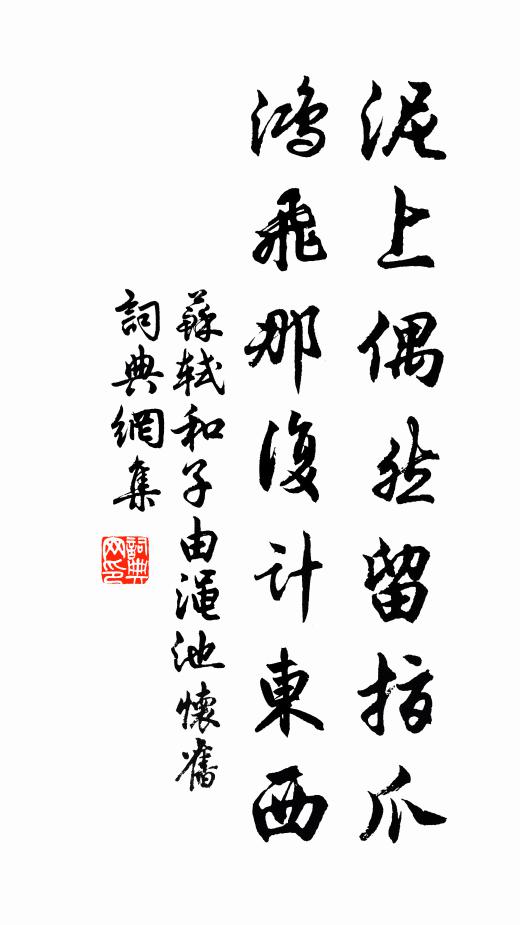 泥上偶然留指爪
鴻飛那復計東西
蘇軾和子由澠池懷舊
詞典網集
詞典网印